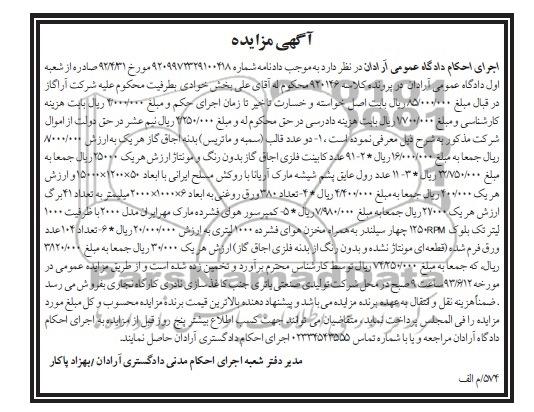 آگهی مزایده
اجرای احکام دادگاه عمومی آرادان در نظر دارد به موجب دادنامه شماره ۹۲۰۹۹۷۲۳۲۹۱۰۰۴۱۸ مورخ ۹۲/۴/۳۱ صادره از شعبه
اول دادگاه عمومی آرادان در پرونده کلاسه ۹۲۰۱۴۶ محکوم له آقای علی بخش خوادی بطرفیت محکوم علیه شرکت آراگاز
در قبال مبلغ ۸۵/۰۰۰/۰۰۰ ریال بابت اصل خواسته و خسارت تاخیر تا زمان اجرای حکم و مبلغ ۴/۰۰۰/۰۰۰ ریال بابت هزینه
کارشناسی و مبلغ ۱/۷۰۰/۰۰۰ ریال بابت هزینه دادرسی در حق محکوم له و مبلغ ۴/۲۵۰/۰۰۰ ریال نیم عشر در حق دولت از اموال
شرکت مذکور به شرح ذیل معرفی نموده است ۱- دو عدد قالب (سمبه و ماتریس) بدنه اجاق گاز هر یک به ارزش ۸/۰۰۰/۰۰۰
ریال جمعا به مبلغ ۱۶/۰۰۰/۰۰۰ ریال *۲- ۹۱ عدد کابینت فلزی اجاق گاز بدون رنگ و مونتاژ ارزش هر یک ۲۵۰۰۰ ریال جمعا به
مبلغ ۲۳/۷۵۰/۰۰۰ ریال *۳- ۱۱ عدد رول عایق پشم شیشه مارک آریانا با روکش مسلح ایرانی با ابعاد ۵۰×۱۲۰۰×۱۵۰۰۰ و ارزش
هر یک ۴۰۰/۰۰۰ ریال جمعا به مبلغ ۴/۴۰۰/۰۰۰ ریال *۴- تعداد ۳۸۰ ورق روغنی به ابعاد ۶×۱۰۰۰×۲۰۰۰ میلیمتر به تعداد ۴۱ برگ
ارزش هر یک ۲۷/۰۰۰ ریال جمعا به مبلغ ۷/۹۸۰/۰۰۰ ریال *۵- کمپرسور هوای فشرده مارک مهر ایران مدل ۲۰۰۰ با ظرفیت ۱۰۰۰
لیتر تک بلوک ۱۲۵۰RPM چهار سیلندر به همراه مخزن هوای فشرده ۱۰۰۰ لیتری به ارزش ۲۰/۰۰۰/۰۰۰ ریال *۶- تعداد ۱۰۴ عدد
ورق فرم شده (قطعه ای مونتاژ نشده و بدون رنگ از بدنه فلزی اجاق گاز) ارزش هر یک ۳۰/۰۰۰ ریال جمعا به مبلغ ۳/۸۲۰/۰۰۰
ریال، که جمعا به مبلغ ۷۴/۲۵۰/۰۰۰ ریال توسط کارشناس محترم برآورد و تخمین زده شده است و از طریق مزایده عمومی در
مورخه ۹۳/۶/۱۲ ساعت ۹ صبح در محل شرکت تولیدی صنعتی باتری جنب کاغذ سازی نادری کارگاه نجاری بفروش می رسد
. ضمنا هزینه نقل و انتقال به عهده برنده مزایده می باشد و پیشنهاد دهنده بالاترین قیمت برنده مزایده محسوب و کل مبلغ مورد
مزایده را فی المجلس پرداخت نماید، متقاضیان می توانند جهت کسب اطلاع بیشتر پنج روز قبل از مزایده به اجرای احکام
دادگاه آرادان مراجعه و یا با شماره تماس ۰۲۳۳۴۵۴۳۵۵۵ اجرای احکام دادگستری آرادان حاصل نمایند.
مدیر دفتر شعبه اجرای احکام مدنی دادگستری آرادان / بهزاد پاکار
۵۷۴/م الف